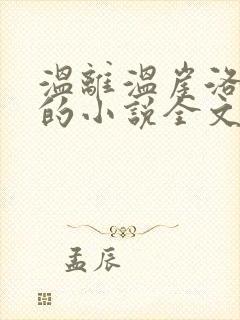 溫離溫崖洛
的小説全文
孟辰